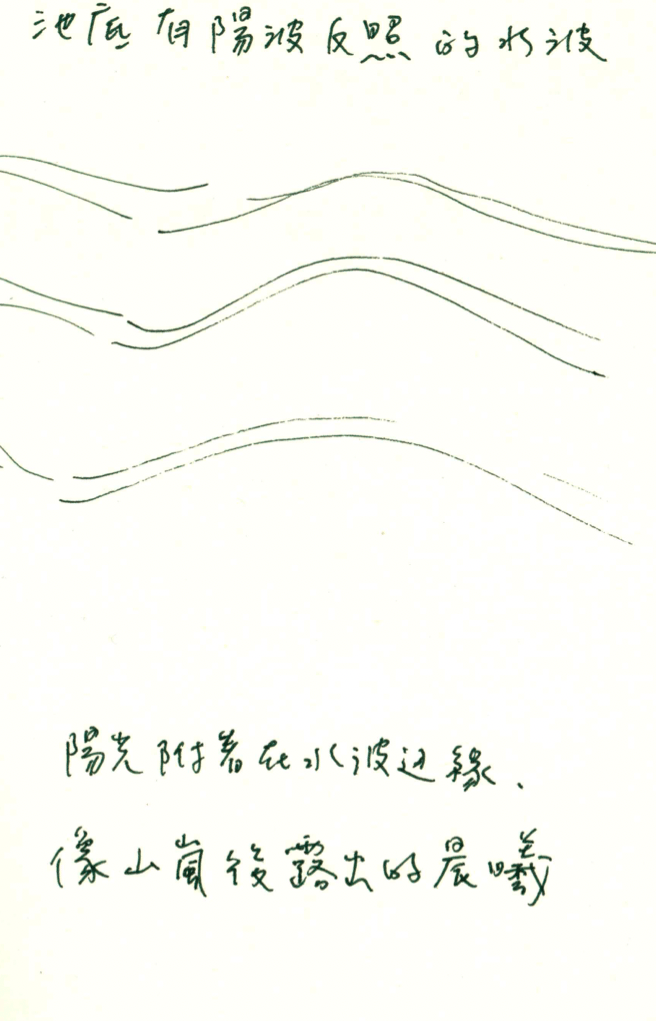 池底有陽波反照的水波
陽光附著在水波边緣、
像山嵐後露出的晨曦